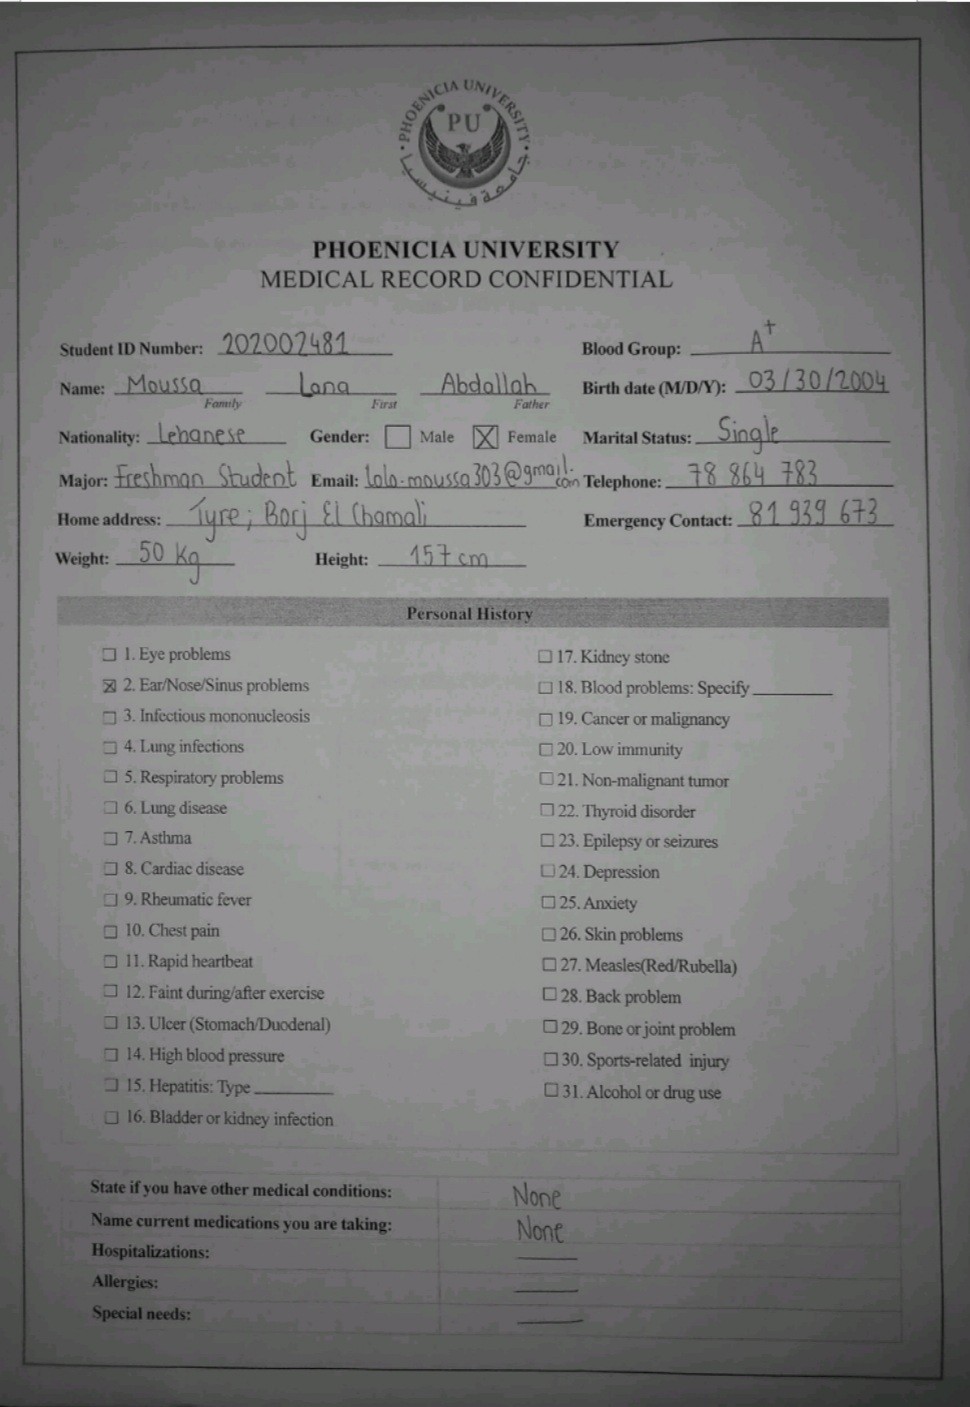 PHOENICIA UNIVERSITY
PU
جامعة فينيسيا
PHOENICIA UNIVERSITY
MEDICAL RECORD CONFIDENTIAL
Student ID Number: 202002481 Blood Group: A+
Name: Moussa Lana Abdallah Birth date (M/D/Y): 03/30/2004
Family First Father
Nationality: Lebanese Gender: ☐ Male ☒ Female Marital Status: Single
Major: Freshman Student Email: lolo.moussa303@gmail.com Telephone: 78 864 783
Home address: Tyre; Borj El Chamali Emergency Contact: 81 939 673
Weight: 50 Kg Height: 157 cm
Personal History
☐ 1. Eye problems
☒ 2. Ear/Nose/Sinus problems
☐ 3. Infectious mononucleosis
☐ 4. Lung infections
☐ 5. Respiratory problems
☐ 6. Lung disease
☐ 7. Asthma
☐ 8. Cardiac disease
☐ 9. Rheumatic fever
☐ 10. Chest pain
☐ 11. Rapid heartbeat
☐ 12. Faint during/after exercise
☐ 13. Ulcer (Stomach/Duodenal)
☐ 14. High blood pressure
☐ 15. Hepatitis: Type ________
☐ 16. Bladder or kidney infection
☐ 17. Kidney stone
☐ 18. Blood problems: Specify ________
☐ 19. Cancer or malignancy
☐ 20. Low immunity
☐ 21. Non-malignant tumor
☐ 22. Thyroid disorder
☐ 23. Epilepsy or seizures
☐ 24. Depression
☐ 25. Anxiety
☐ 26. Skin problems
☐ 27. Measles(Red/Rubella)
☐ 28. Back problem
☐ 29. Bone or joint problem
☐ 30. Sports-related injury
☐ 31. Alcohol or drug use
State if you have other medical conditions: None
Name current medications you are taking: None
Hospitalizations: —
Allergies: —
Special needs: —